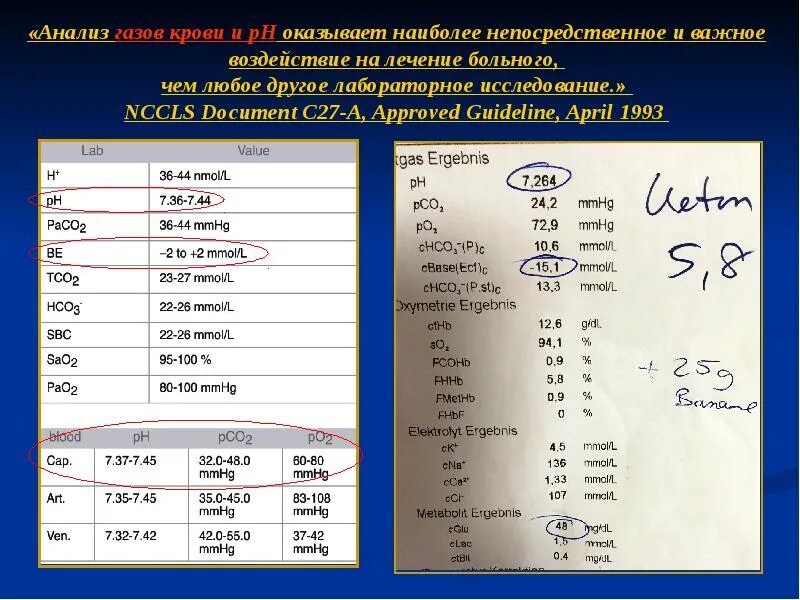 «Анализ газов крови и рН оказывает наиболее непосредственное и важное
воздействие на лечение больного,
чем любое другое лабораторное исследование.»
NCCLS Document C27-A, Approved Guideline, April 1993
Lab Value
H⁺ 36-44 nmol/L
pH 7.36-7.44
PaCO₂ 36-44 mmHg
BE –2 to +2 mmol/L
TCO₂ 23-27 mmol/L
HCO₃⁻ 22-26 mmol/L
SBC 22-26 mmol/L
SaO₂ 95-100 %
PaO₂ 80-100 mmHg
blood pH pCO₂ pO₂
Cap. 7.37-7.45 32.0-48.0 mmHg 60-80 mmHg
Art. 7.35-7.45 35.0-45.0 mmHg 83-108 mmHg
Ven. 7.32-7.42 42.0-55.0 mmHg 37-42 mmHg
tgas Ergebnis
pH 7,264
pCO₂ 24,2 mmHg
pO₂ 72,9 mmHg
cHCO₃⁻(P)c 10,6 mmol/L
cBase(Ecf)c -15,1 mmol/L
cHCO₃⁻(P,st)c 13,3 mmol/L
Oxymetrie Ergebnis
ctHb 12,6 g/dL
sO₂ 94,1 %
FCOHb 0,9 %
FHHb 5,8 %
FMetHb 0,9 %
FHbF 0 %
Elektrolyt Ergebnis
cK⁺ 4,5 mmol/L
cNa⁺ 136 mmol/L
cCa²⁺ 1,33 mmol/L
cCl⁻ 107 mmol/L
Metabolit Ergebnis
cGlu 48 mg/dL
cLac 1,5 mmol/L
ctBil 0.4 mg/dL
Keton
5,8
+ 25g
Banane